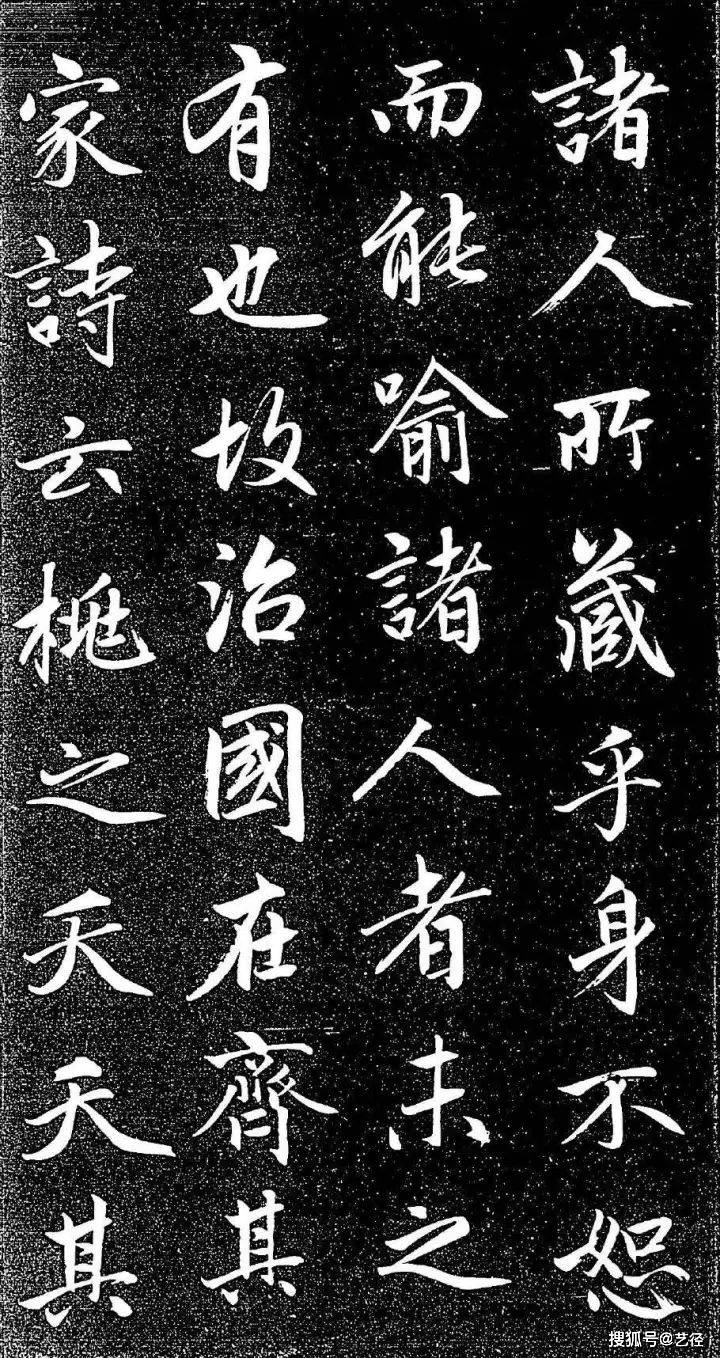 諸人所藏乎身不恕
而能喻諸人者未之
有也故治國在齊其
家詩云桃之夭夭其
搜狐号@艺径